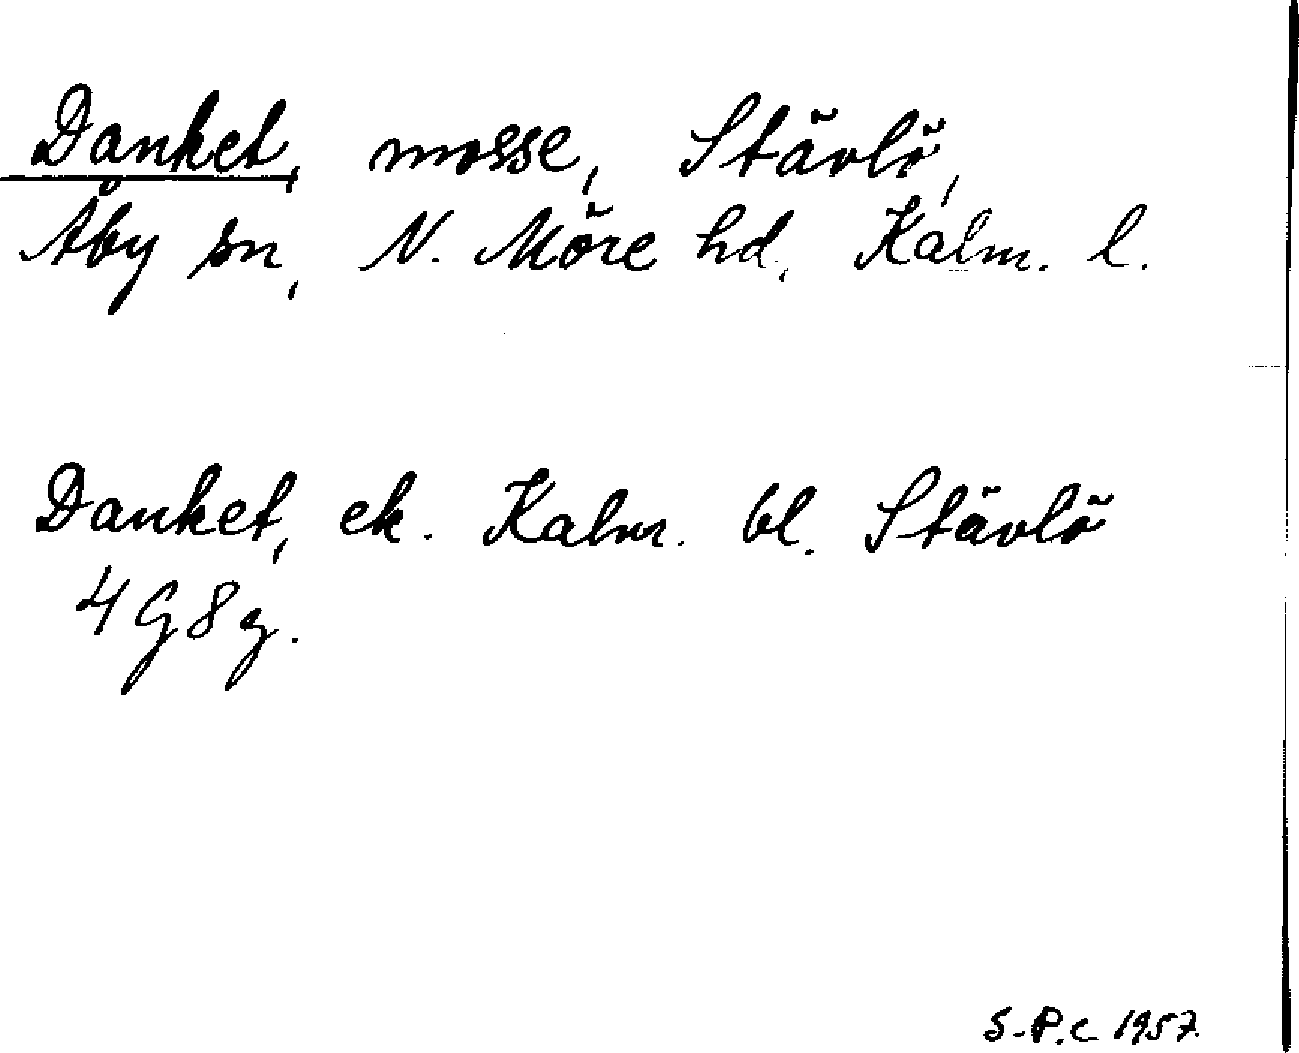 Danket, mosse, Stävlö,
Åby sn, N. Möre hd, Kalm. l.
Danket, ek. Kalm. bl. Stävlö
4G8g.
S-P.c 1957